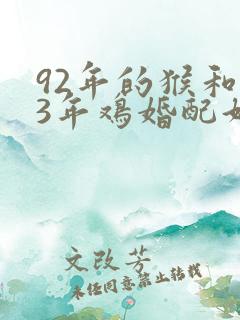 92年的猴和
3年鸡婚配
文改芳
未经同意禁止转载